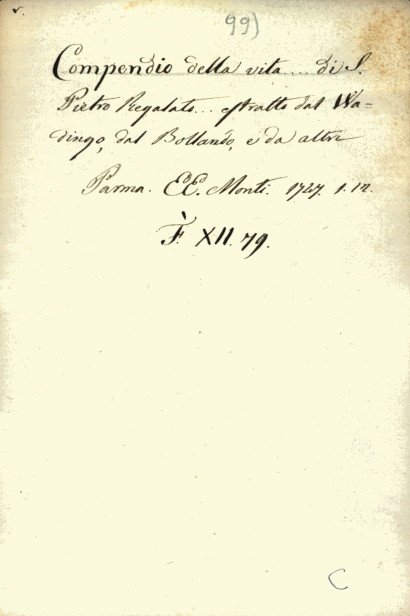 99)
Compendio della vita .... di S.
Pietro Regalato ... estratto dal Wa-
dingo, dal Bollando, e da altri
Parma. EE. Monti. 1747. 1. 12.
F. XII. 79.
C